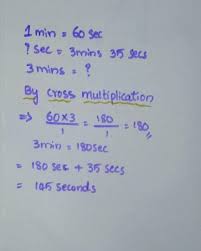 1 min = 60 sec
? sec = 3mins 35 secs
3 mins = ?
By cross multiplication
⇒ 60×3/1 = 180/1 = 180
3min = 180sec
= 180 ses + 35 secs
= 195 seconds